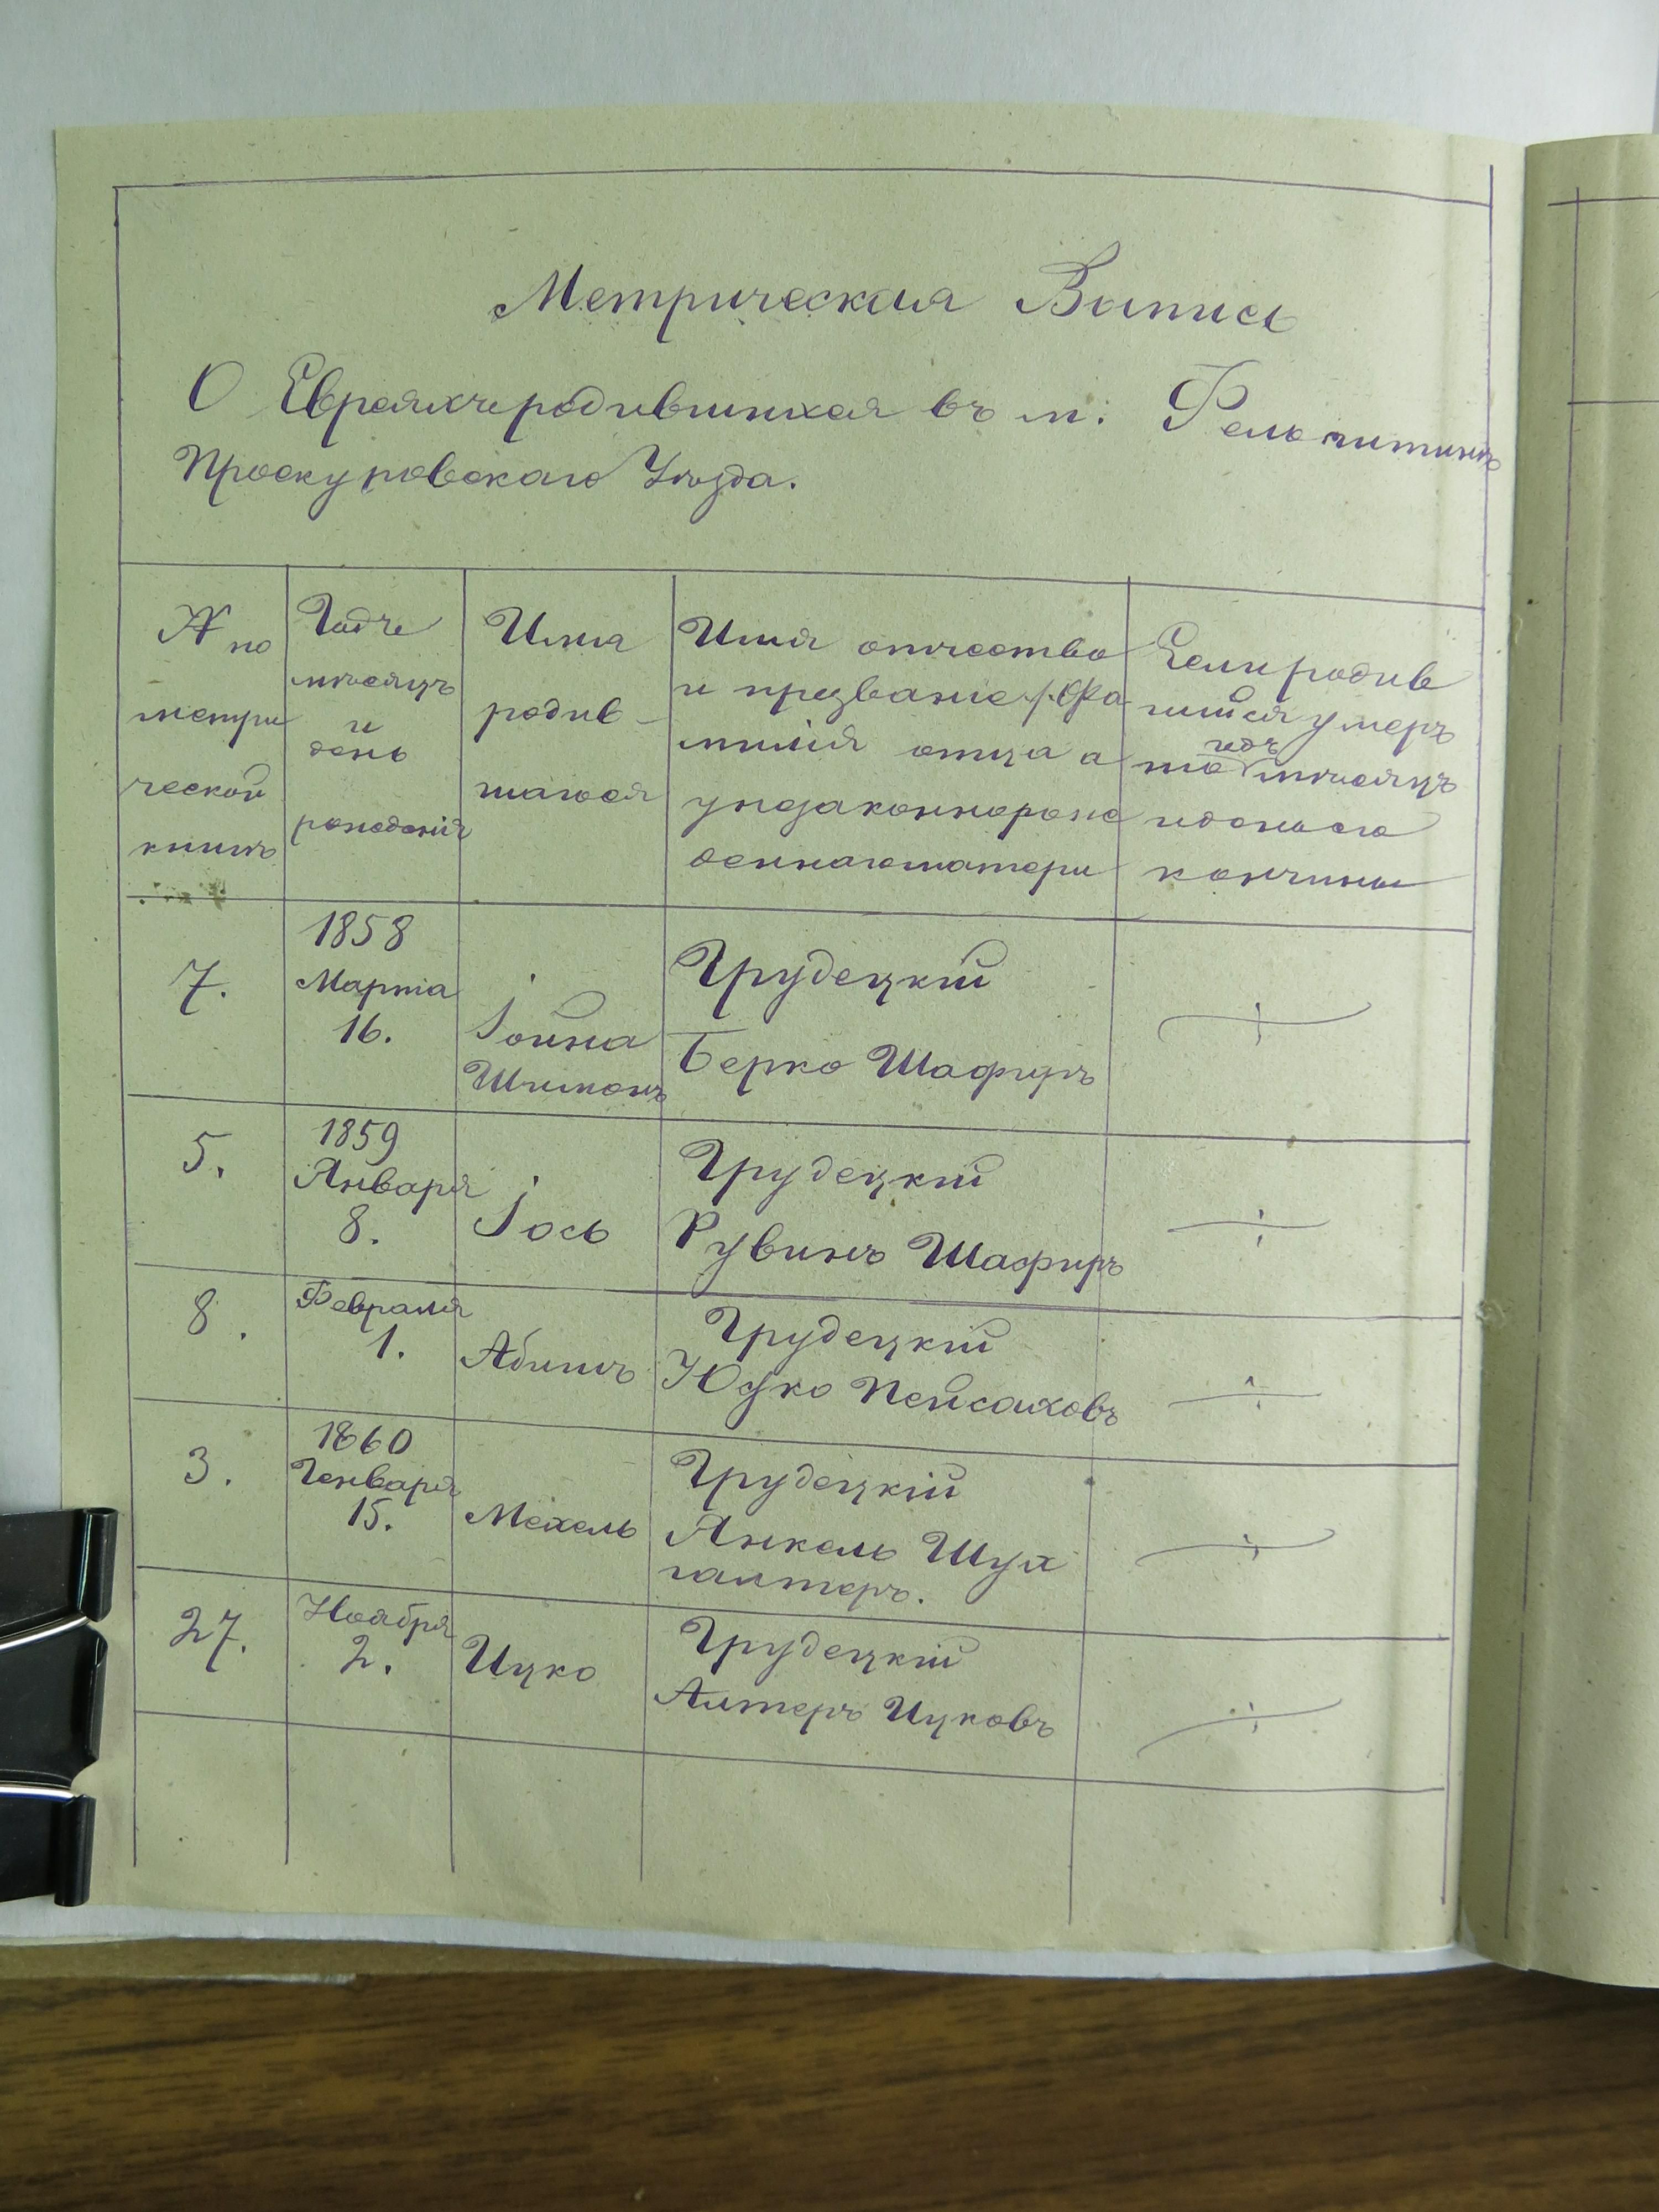 Метрическая Запись
О Евреяхъ родившихся въ м: Фельштинѣ
Проскуровскаго Уѣзда.
№ по
метри
ческой
книгѣ
Годъ
мѣсяцъ
и
день
рожденія
Имя
родив-
шагося
Имя отчество
и прозваніе /: Фа
милія отца а
у незаконнорож
деннаго матери
Если родив
шійся умеръ
годъ
то мѣсяцъ
и день его
кончины
7.
1858
Марта
16.
Іойна
Шимонъ
Грудецкій
Берко Шафиръ
5.
1859
Января
8.
Іось
Грудецкій
Рувинъ Шафиръ
8.
Февраля
1.
Абишъ
Грудецкій
Юсько Пейсаховъ
3.
1860
Генваря
15.
Мехель
Грудецкій
Янкель Шул
галтеръ.
27.
Ноября
2.
Ицко
Грудецкій
Алтеръ Ицковъ